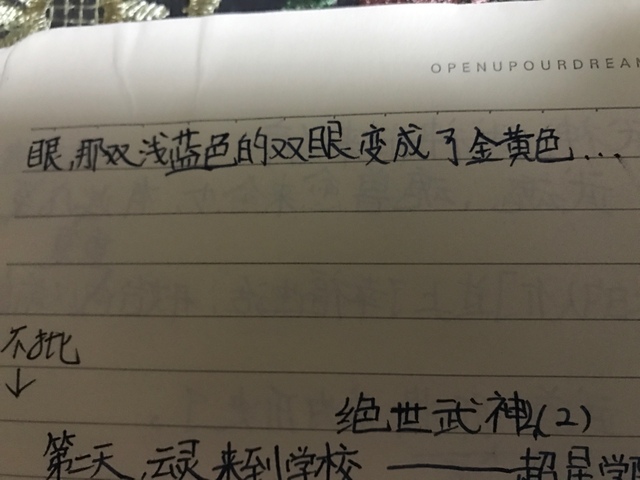 OPENUPOURDREAM
眼,那双浅蓝色的双眼变成了金黄色...
不批
↓
绝世武神(2)
第二天,云灵来到学校——超星学